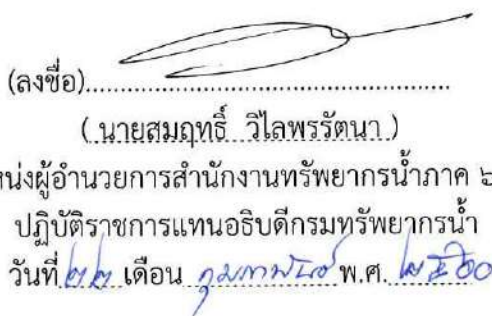 (ลงชื่อ)........................................................
( นายสมฤทธิ์ วิไลพรรัตนา )
หน่งผู้อำนวยการสำนักงานทรัพยากรน้ำภาค ๖
ปฏิบัติราชการแทนอธิบดีกรมทรัพยากรน้ำ
วันที่ ๒๒ เดือน กุมภาพันธ์ พ.ศ. ๒๕๖๐